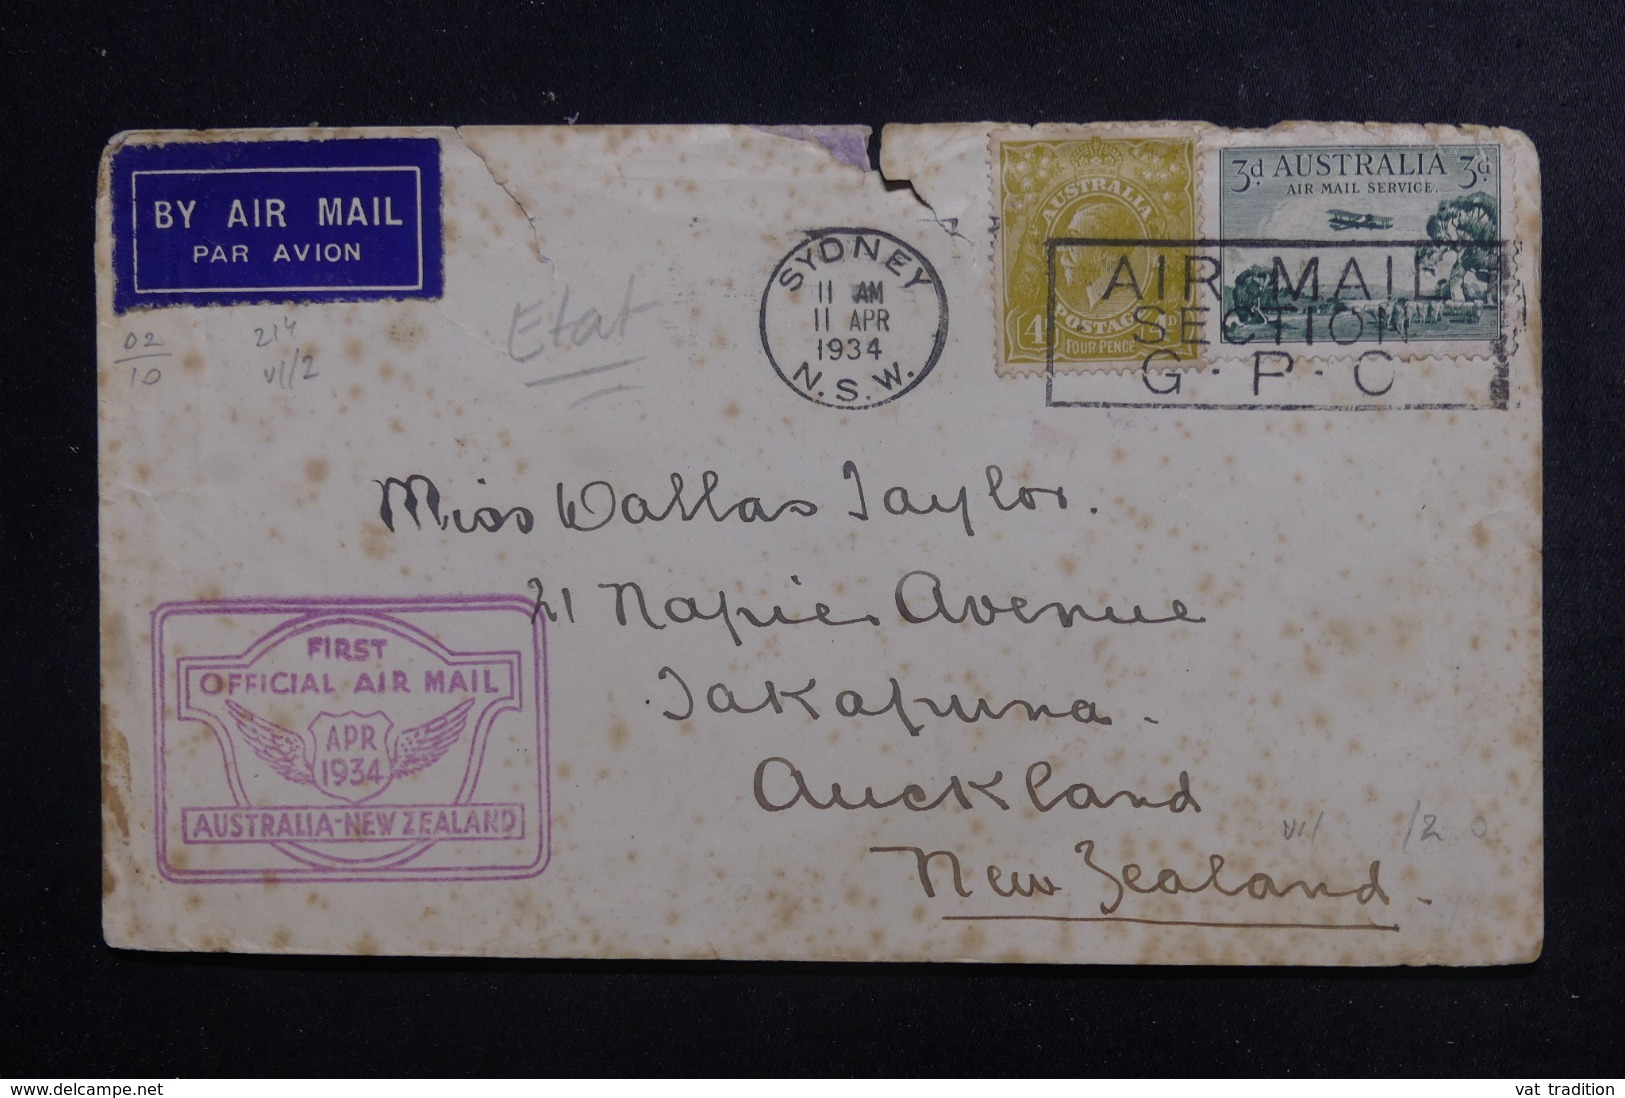 BY AIR MAIL
PAR AVION
02
10
214
VI/2
Etat
SYDNEY
11 AM
11 APR
1934
N.S.W.
AUSTRALIA
POSTAGE
FOUR PENCE
3d AUSTRALIA 3d
AIR MAIL SERVICE.
AIR MAIL
SECTION
G.P.O
Miss Wallas Taylor.
21 Napier Avenue
Takapuna.
Auckland
New Zealand.
FIRST
OFFICIAL AIR MAIL
APR
1934
AUSTRALIA-NEW ZEALAND
www.delcampe.net
vat tradition